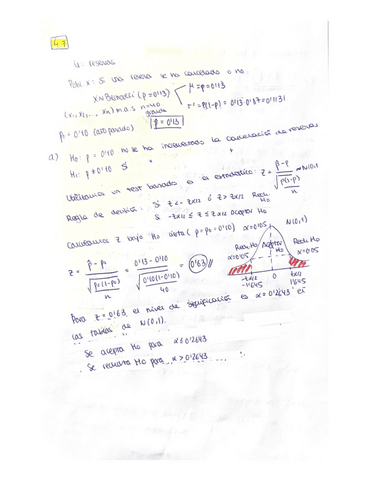 4.7
U: reservas
Pobl x: Si una reserva se ha cancelado o no.
X~Bernoulli (p=0'13) μ=p=0'13
σ²=P(1-p)=0'13·0'87=0'1131
(x₁, x₂, ..., xn) m.a.s n=40
p̂=0'13
p=0'10 (año pasado)
a) H₀: p=0'10 no se ha incrementado la cancelación de reservas
H₁: p≠0'10 Sí " "
Utilizamos un test basado en el estadístico: Z = p̂-p / √(p(1-p)/n) ≈ N(0,1)
Regla de decisión: Si Z<-zα/2 ó Z>zα/2 Rech. H₀
Si -zα/2 ≤ Z ≤ zα/2 Aceptar H₀
Calculamos Z bajo H₀ cierta (p=p₀=0'10)
Z = p̂-p₀ / √(p₀(1-p₀)/n) = 0'13-0'10 / √(0'10(1-0'10)/40) = 0'63 //
α=0'05 N(0,1)
Rech. H₀ Aceptar H₀ Rech. H₀
α=0'05 α=0'05
-zα/2 0 zα/2
-1'645 1'645
Para Z=0'63, el nivel de significación es α=0'2643
las tablas de N(0,1).
Se acepta H₀ para α≤0'2643
Se rechaza H₀ para α>0'2643